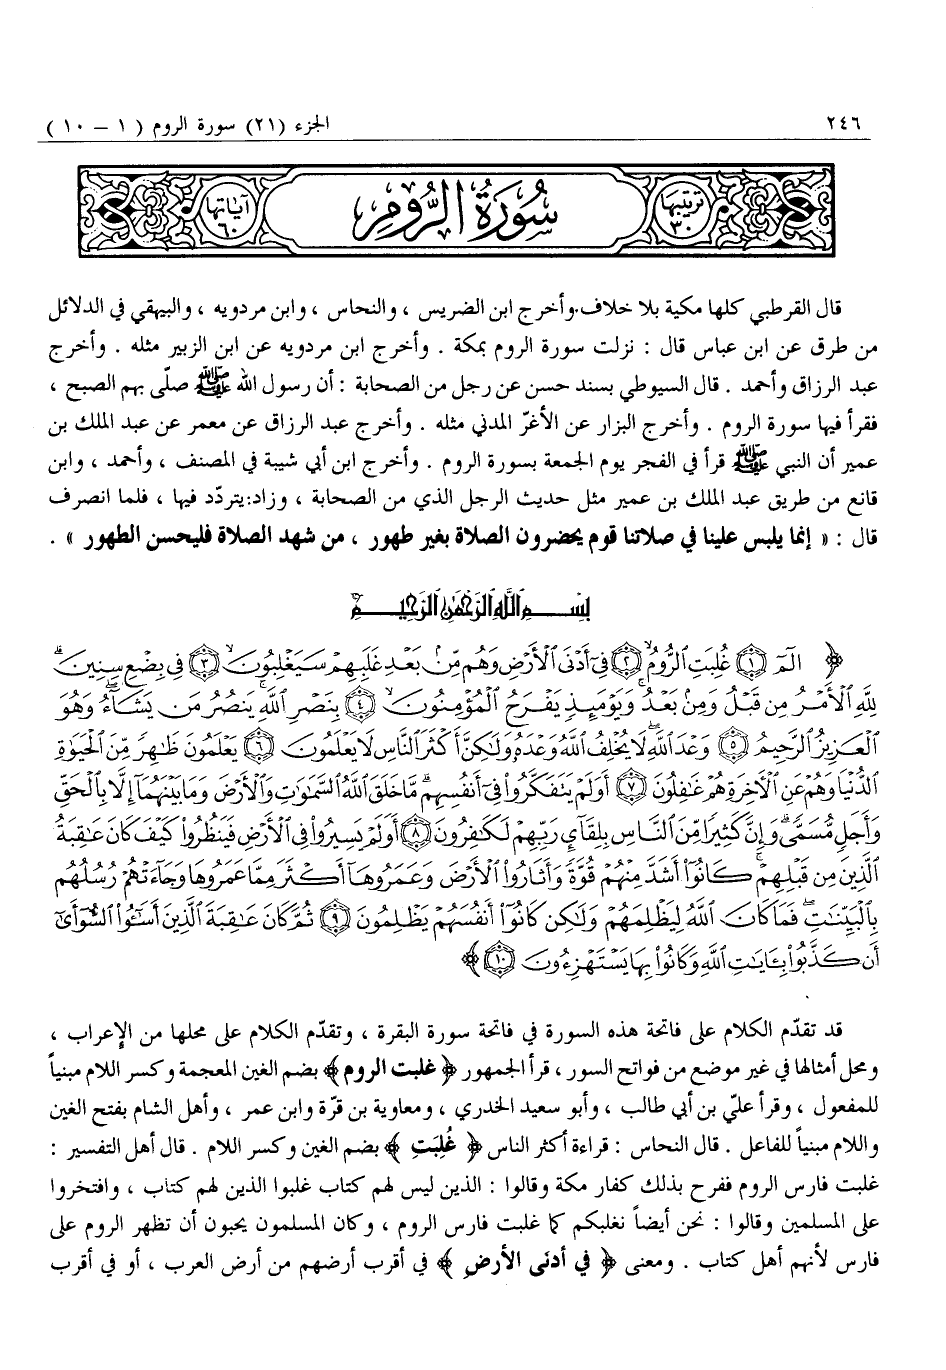 ٢٤٦
الجزء (٢١) سورة الروم ( ١ – ١٠ )
ترتيبها ٣٠
سُورَةُ الرُّومِ
آياتها ٦٠
قال القرطبي كلها مكية بلا خلاف.وأخرج ابن الضريس ، والنحاس ، وابن مردويه ، والبيهقي في الدلائل
من طرق عن ابن عباس قال : نزلت سورة الروم بمكة . وأخرج ابن مردويه عن ابن الزبير مثله . وأخرج
عبد الرزاق وأحمد . قال السيوطي بسند حسن عن رجل من الصحابة : أن رسول الله ﷺ صلّى بهم الصبح ،
فقرأ فيها سورة الروم . وأخرج البزار عن الأغرّ المدني مثله . وأخرج عبد الرزاق عن معمر عن عبد الملك بن
عمير أن النبي ﷺ قرأ في الفجر يوم الجمعة بسورة الروم . وأخرج ابن أبي شيبة في المصنف ، وأحمد ، وابن
قانع من طريق عبد الملك بن عمير مثل حديث الرجل الذي من الصحابة ، وزاد:يتردّد فيها ، فلما انصرف
قال : « إنما يلبس علينا في صلاتنا قوم يحضرون الصلاة بغير طهور ، من شهد الصلاة فليحسن الطهور » .
بِسْمِ اللَّهِ الرَّحْمَٰنِ الرَّحِيمِ
﴿ الٓمٓ ﴿١﴾ غُلِبَتِ ٱلرُّومُ ﴿٢﴾ فِىٓ أَدْنَى ٱلْأَرْضِ وَهُم مِّنۢ بَعْدِ غَلَبِهِمْ سَيَغْلِبُونَ ﴿٣﴾ فِى بِضْعِ سِنِينَ ۗ
لِلَّهِ ٱلْأَمْرُ مِن قَبْلُ وَمِنۢ بَعْدُ ۚ وَيَوْمَئِذٍ يَفْرَحُ ٱلْمُؤْمِنُونَ ﴿٤﴾ بِنَصْرِ ٱللَّهِ ۚ يَنصُرُ مَن يَشَآءُ ۖ وَهُوَ
ٱلْعَزِيزُ ٱلرَّحِيمُ ﴿٥﴾ وَعْدَ ٱللَّهِ ۖ لَا يُخْلِفُ ٱللَّهُ وَعْدَهُۥ وَلَٰكِنَّ أَكْثَرَ ٱلنَّاسِ لَا يَعْلَمُونَ ﴿٦﴾ يَعْلَمُونَ ظَٰهِرًا مِّنَ ٱلْحَيَوٰةِ
ٱلدُّنْيَا وَهُمْ عَنِ ٱلْأَخِرَةِ هُمْ غَٰفِلُونَ ﴿٧﴾ أَوَلَمْ يَتَفَكَّرُوا۟ فِىٓ أَنفُسِهِم ۗ مَّا خَلَقَ ٱللَّهُ ٱلسَّمَٰوَٰتِ وَٱلْأَرْضَ وَمَا بَيْنَهُمَآ إِلَّا بِٱلْحَقِّ
وَأَجَلٍ مُّسَمًّى ۗ وَإِنَّ كَثِيرًا مِّنَ ٱلنَّاسِ بِلِقَآئِ رَبِّهِمْ لَكَٰفِرُونَ ﴿٨﴾ أَوَلَمْ يَسِيرُوا۟ فِى ٱلْأَرْضِ فَيَنظُرُوا۟ كَيْفَ كَانَ عَٰقِبَةُ
ٱلَّذِينَ مِن قَبْلِهِمْ ۚ كَانُوٓا۟ أَشَدَّ مِنْهُمْ قُوَّةً وَأَثَارُوا۟ ٱلْأَرْضَ وَعَمَرُوهَآ أَكْثَرَ مِمَّا عَمَرُوهَا وَجَآءَتْهُمْ رُسُلُهُم
بِٱلْبَيِّنَٰتِ ۖ فَمَا كَانَ ٱللَّهُ لِيَظْلِمَهُمْ وَلَٰكِن كَانُوٓا۟ أَنفُسَهُمْ يَظْلِمُونَ ﴿٩﴾ ثُمَّ كَانَ عَٰقِبَةَ ٱلَّذِينَ أَسَٰٓـُٔوا۟ ٱلسُّوٓأَىٰٓ
أَن كَذَّبُوا۟ بِـَٔايَٰتِ ٱللَّهِ وَكَانُوا۟ بِهَا يَسْتَهْزِءُونَ ﴿١٠﴾ ﴾
قد تقدّم الكلام على فاتحة هذه السورة في فاتحة سورة البقرة ، وتقدّم الكلام على محلها من الإعراب ،
ومحل أمثالها في غير موضع من فواتح السور ، قرأ الجمهور ﴿ غلبت الروم ﴾ بضم الغين المعجمة وكسر اللام مبنياً
للمفعول ، وقرأ عليّ بن أبي طالب ، وأبو سعيد الخدري ، ومعاوية بن قرّة وابن عمر ، وأهل الشام بفتح الغين
واللام مبنياً للفاعل . قال النحاس : قراءة أكثر الناس ﴿ غُلِبَتِ ﴾ بضم الغين وكسر اللام . قال أهل التفسير :
غلبت فارس الروم ففرح بذلك كفار مكة وقالوا : الذين ليس لهم كتاب غلبوا الذين لهم كتاب ، وافتخروا
على المسلمين وقالوا : نحن أيضاً نغلبكم كما غلبت فارس الروم ، وكان المسلمون يحبون أن تظهر الروم على
فارس لأنهم أهل كتاب . ومعنى ﴿ في أدنَى الأرضِ ﴾ في أقرب أرضهم من أرض العرب ، أو في أقرب